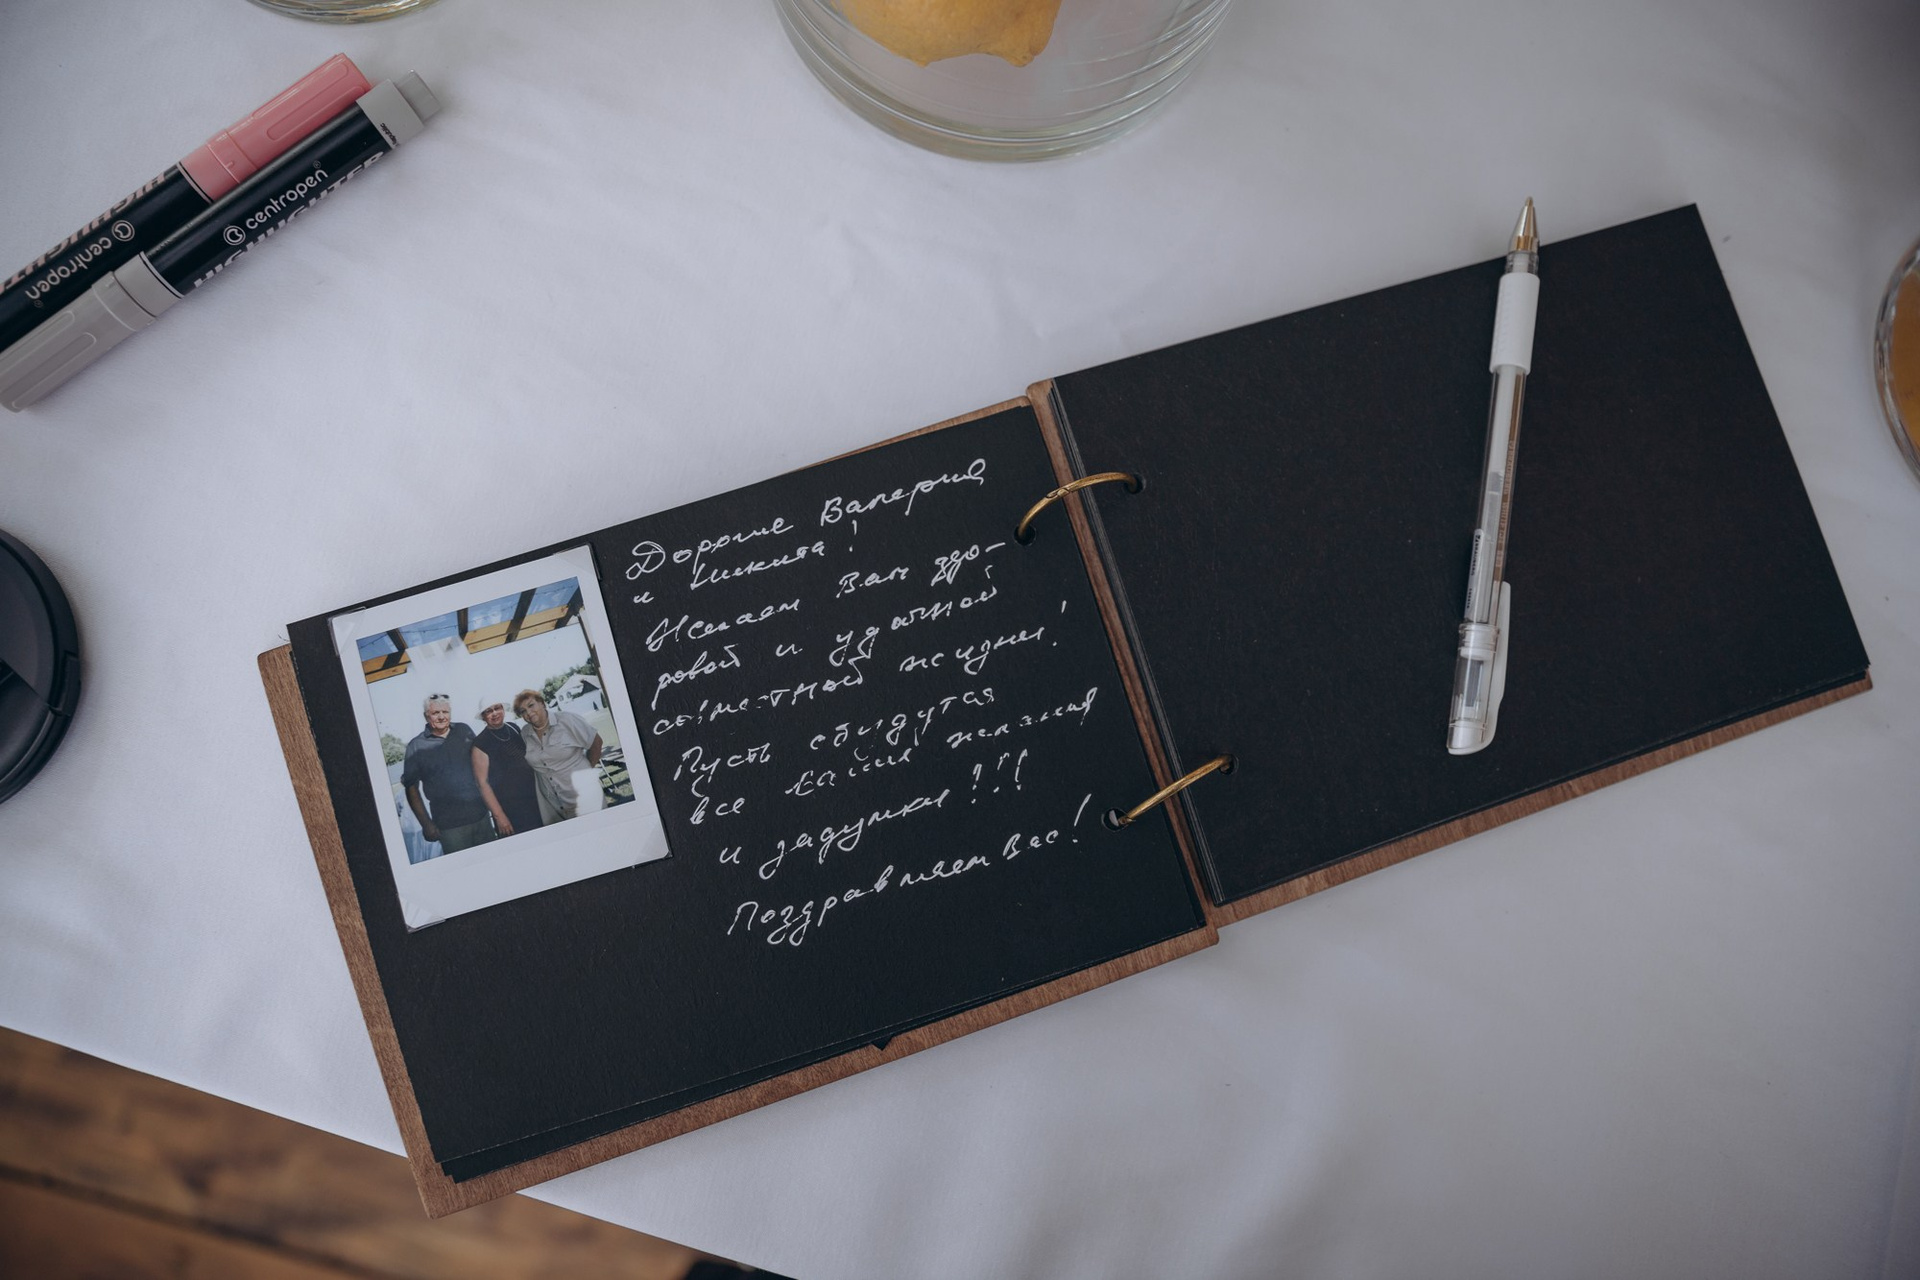 centropen
HIGHLIGHTER
centropen
HIGHLIGHT
Дорогие Валерия
и Никита!
Желаем Вам здо-
ровой и удачной
совместной жизни!
Пусть сбудутся
все ваши желания
и задумки!!!
Поздравляем Вас!